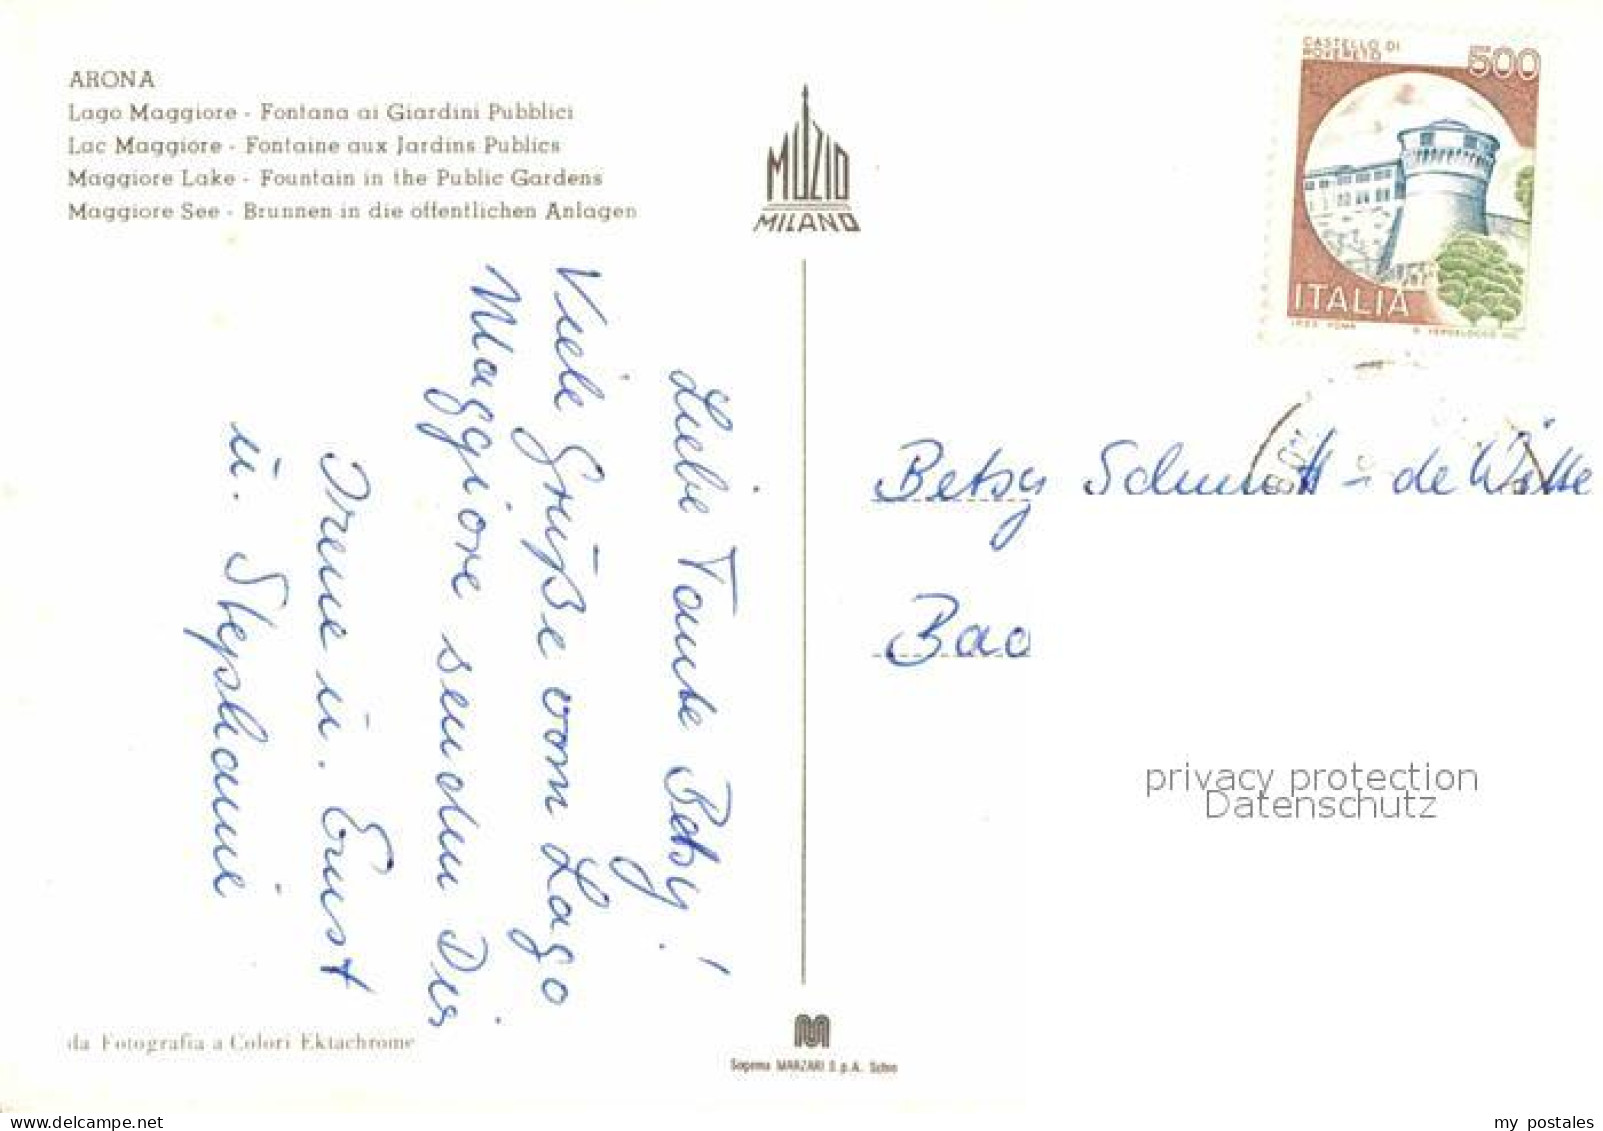 ARONA
Lago Maggiore - Fontana ai Giardini Pubblici
Lac Maggiore - Fontaine aux Jardins Publics
Maggiore Lake - Fountain in the Public Gardens
Maggiore See - Brunnen in die öffentlichen Anlagen
MUZIO
MILANO
CASTELLO DI
ROVERETO
500
ITALIA
Liebe Tante Betsy!
Viele Grüße vom Lago
Maggiore senden Dir
Irene u. Ernst
u. Stephanie
Betsy Schmitt - de Witte
Bad
privacy protection
Datenschutz
da Fotografia a Colori Ektachrome
M
Sogema MARZARI S.p.A. Schio
delcampe.net
my_postales